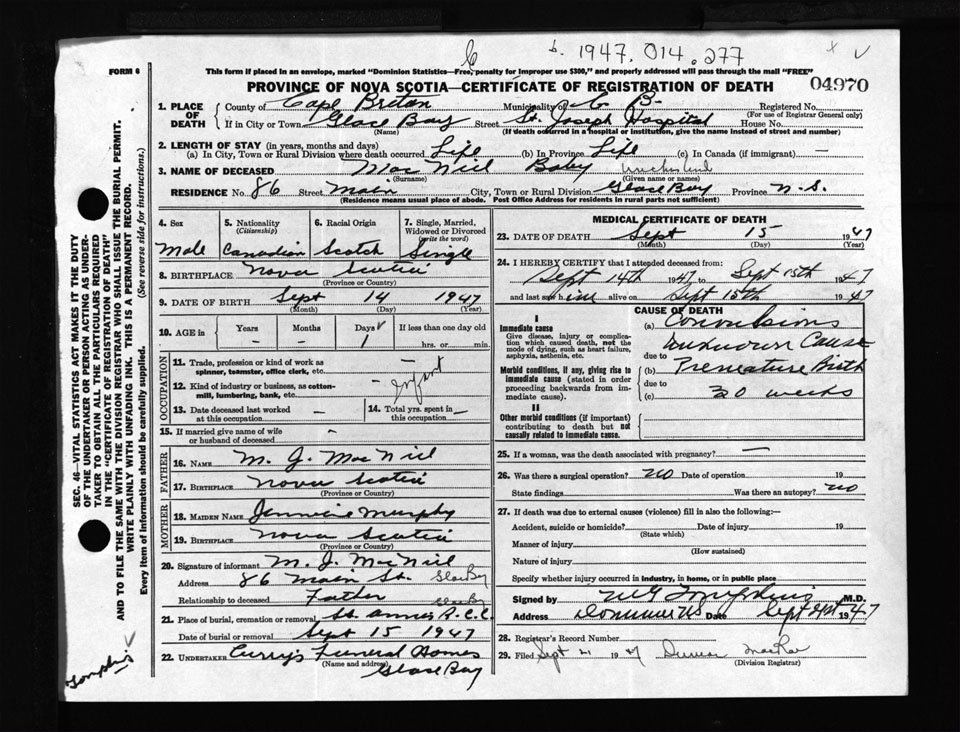 b. 1947. 014. 277
FORM 6
This form if placed in an envelope, marked "Dominion Statistics—Free, penalty for improper use $300," and properly addressed will pass through the mail "FREE"
PROVINCE OF NOVA SCOTIA—CERTIFICATE OF REGISTRATION OF DEATH
04970
1. PLACE OF DEATH
County of Cape Breton Municipality of C. B. Registered No.
(For use of Registrar General only)
If in City or Town Glace Bay Street St. Joseph Hospital House No.
(Name) (If death occurred in a hospital or institution, give the name instead of street and number)
2. LENGTH OF STAY (in years, months and days)
(a) In City, Town or Rural Division where death occurred Life (b) In Province Life (c) In Canada (if immigrant) —
3. NAME OF DECEASED MacNiel Baby
(Surname) (Given name or names)
RESIDENCE No. 86 Street Main City, Town or Rural Division Glace Bay Province N. S.
(Residence means usual place of abode. Post Office Address for residents in rural parts not sufficient)
4. Sex
Male
5. Nationality
(Citizenship)
Canadian
6. Racial Origin
Scotch
7. Single, Married, Widowed or Divorced
(write the word)
Single
8. BIRTHPLACE Nova Scotia
(Province or Country)
9. DATE OF BIRTH Sept 14 1947
(Month) (Day) (Year)
10. AGE in Years Months Days If less than one day old
– – 1 hrs. or min.
OCCUPATION
11. Trade, profession or kind of work as spinner, teamster, office clerk, etc. —
12. Kind of industry or business, as cotton-mill, lumbering, bank, etc. – infant
13. Date deceased last worked at this occupation —
14. Total yrs. spent in this occupation —
15. If married give name of wife or husband of deceased —
FATHER
16. NAME M. J. MacNiel
17. BIRTHPLACE Nova Scotia
(Province or Country)
MOTHER
18. MAIDEN NAME Murphy
19. BIRTHPLACE Nova Scotia
(Province or Country)
20. Signature of informant M. J. MacNiel
Address 86 Main St. Glace Bay
Relationship to deceased Father
21. Place of burial, cremation or removal St. Annes R.C.C. Glace Bay
Date of burial or removal Sept 15 1947
22. UNDERTAKER Curry's Funeral Homes
(Name and address)
Glace Bay
MEDICAL CERTIFICATE OF DEATH
23. DATE OF DEATH Sept 15 1947
(Month) (Day) (Year)
24. I HEREBY CERTIFY that I attended deceased from:
Sept 14th 1947 to Sept 15th 1947
and last saw him alive on Sept 15th 1947
CAUSE OF DEATH
I
Immediate cause
Give disease, injury or complication which caused death, not the mode of dying, such as heart failure, asphyxia, asthenia, etc.
(a) Convulsions
unknown Cause
due to
Morbid conditions, if any, giving rise to immediate cause (stated in order proceeding backwards from immediate cause).
(b) Premature Birth
due to
(c) 30 weeks
II
Other morbid conditions (if important) contributing to death but not causally related to immediate cause.
25. If a woman, was the death associated with pregnancy? —
26. Was there a surgical operation? no Date of operation 19
State findings Was there an autopsy? no
27. If death was due to external causes (violence) fill in also the following:—
Accident, suicide or homicide? Date of injury 19
(State which)
Manner of injury
(How sustained)
Nature of injury
Specify whether injury occurred in industry, in home, or in public place
Signed by M.D.
Address Dominion NS Date Sept 21st 1947
28. Registrar's Record Number
29. Filed Sept 21 1947 Duncan MacRae
(Division Registrar)
SEC. 46—VITAL STATISTICS ACT MAKES IT THE DUTY OF THE UNDERTAKER OR PERSON ACTING AS UNDERTAKER TO OBTAIN ALL THE PARTICULARS REQUIRED IN THE "CERTIFICATE OF REGISTRATION OF DEATH"
AND TO FILE THE SAME WITH THE DIVISION REGISTRAR WHO SHALL ISSUE THE BURIAL PERMIT.
WRITE PLAINLY WITH UNFADING INK. THIS IS A PERMANENT RECORD.
Every item of information should be carefully supplied. (See reverse side for instructions.)